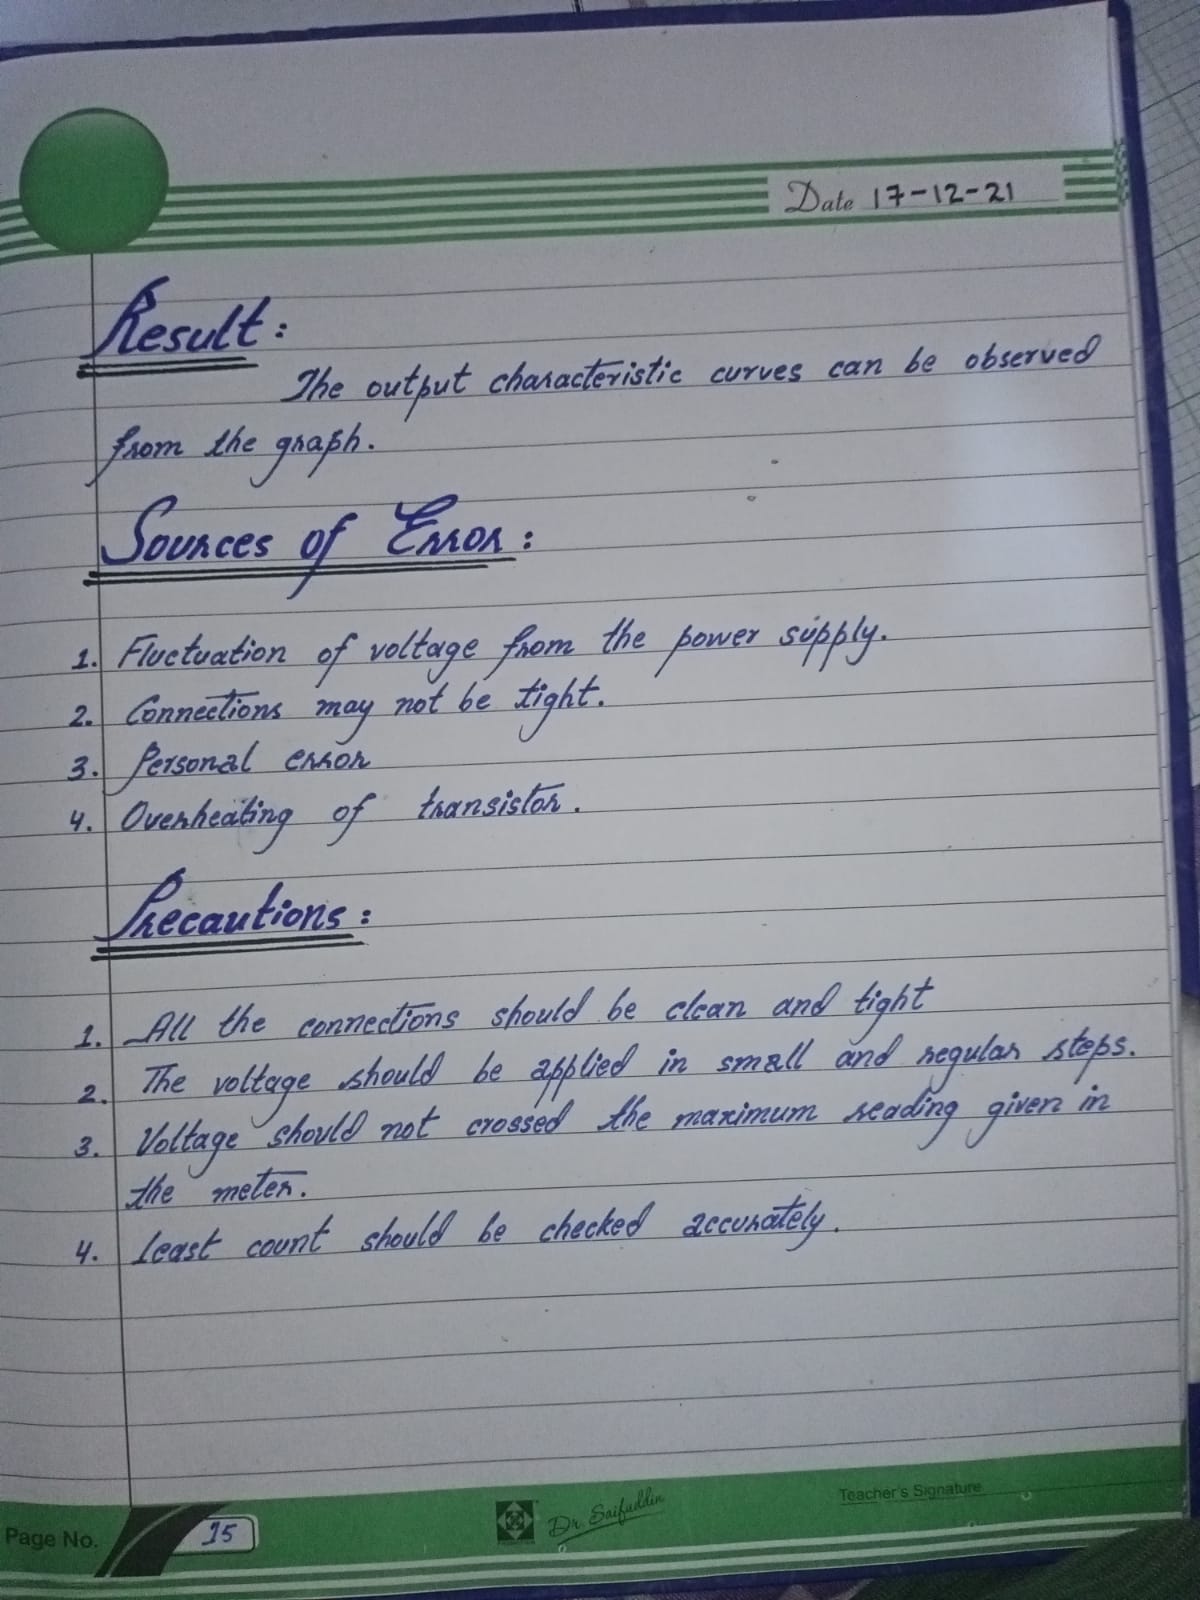 Date 17-12-21
Result:
The output characteristic curves can be observed
from the graph.
Sources of Error:
1. Fluctuation of voltage from the power supply.
2. Connections may not be tight.
3. Personal error
4. Overheating of transistor.
Precautions:
1. All the connections should be clean and tight
2. The voltage should be applied in small and regular steps.
3. Voltage should not crossed the maximum reading given in
the meter.
4. Least count should be checked accurately.
Teacher's Signature
Dr. Saifuddin
Page No. 15